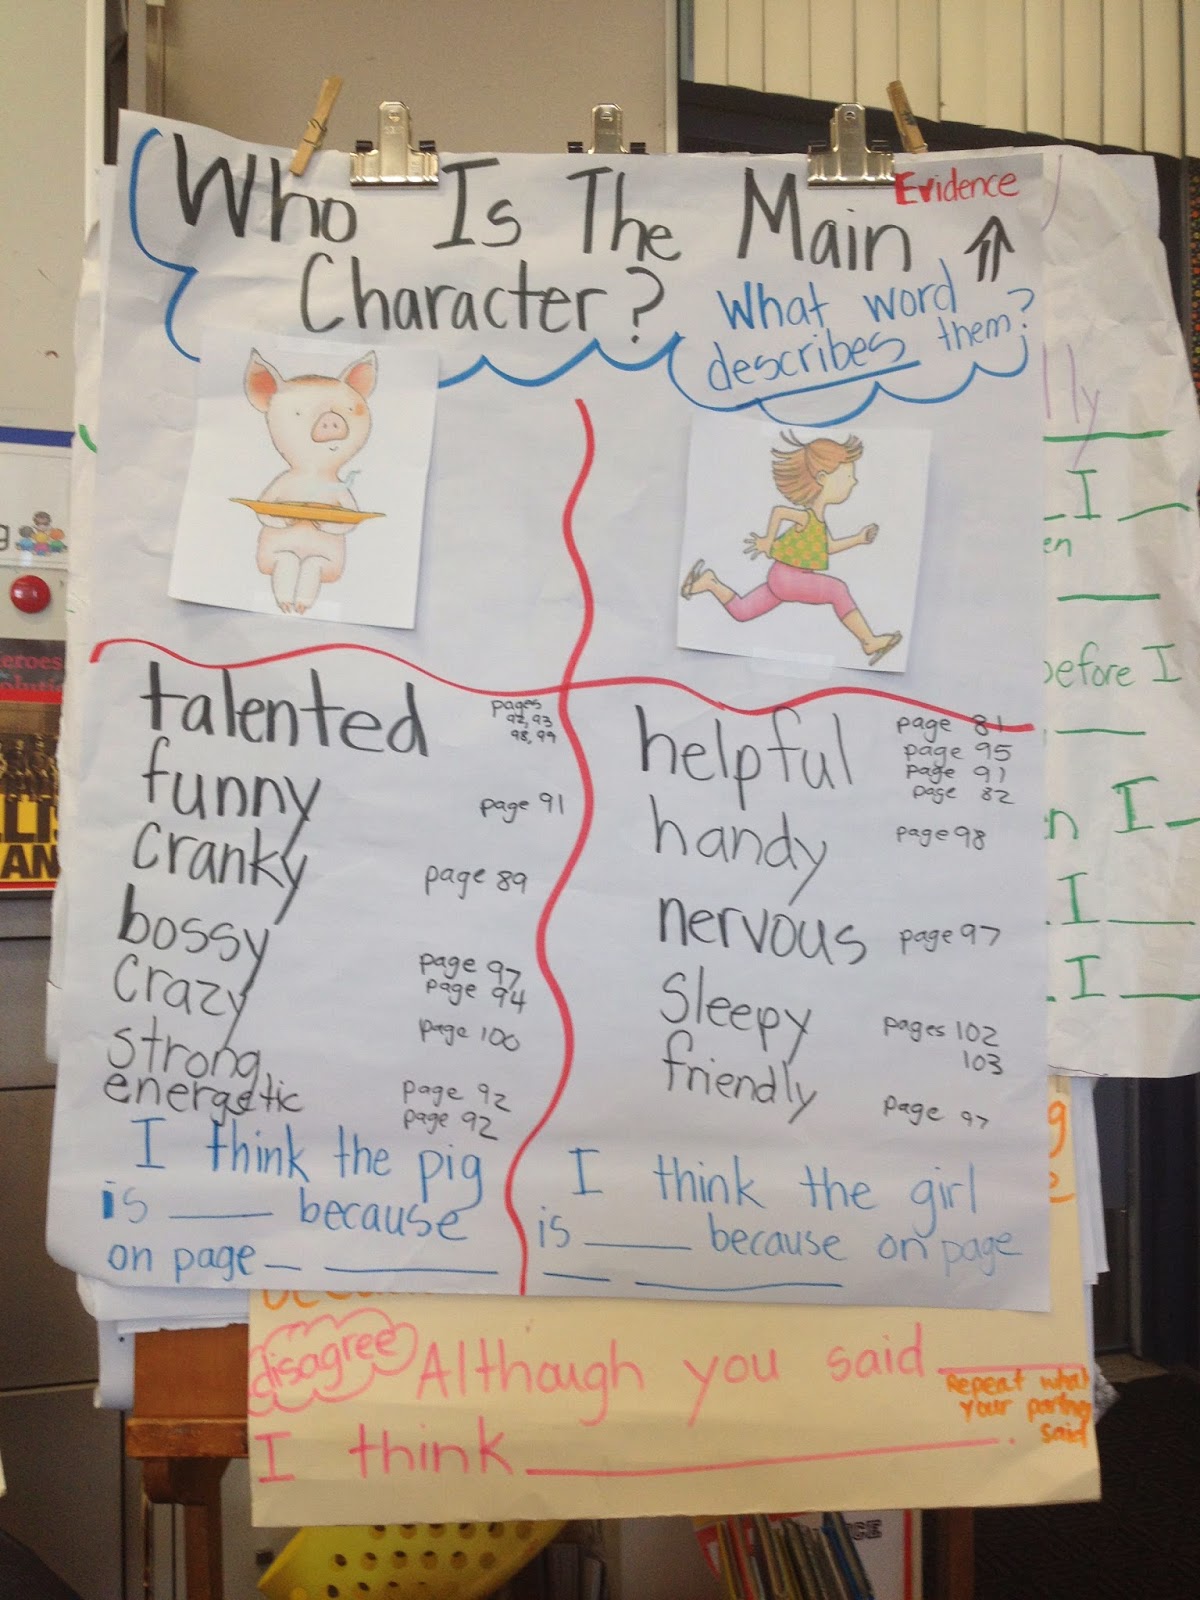 Who Is The Main
Character?
Evidence
What word
describes them?
talented
pages
92, 93
98, 99
funny
page 91
cranky
page 89
bossy
page 97
crazy
page 94
strong
page 100
energetic
page 92
page 92
I think the pig
is ____ because
on page _ ______
helpful
page 81
page 95
page 91
page 82
handy
page 98
nervous
page 97
Sleepy
pages 102
103
friendly
page 97
I think the girl
is ____ because on page
___ ______
disagree
Although you said ______
Repeat what
your partner
said
I think ____________.
I
before I
I
I
I